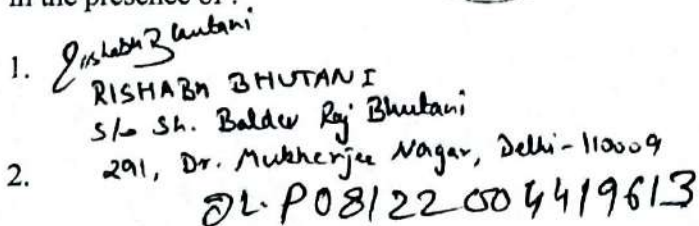 in the presence of :
1. Rishabh Bhutani
RISHABH BHUTANI
S/o Sh. Baldev Raj Bhutani
291, Dr. Mukherjee Nagar, Delhi-110009
2.
DL. P08122004419613